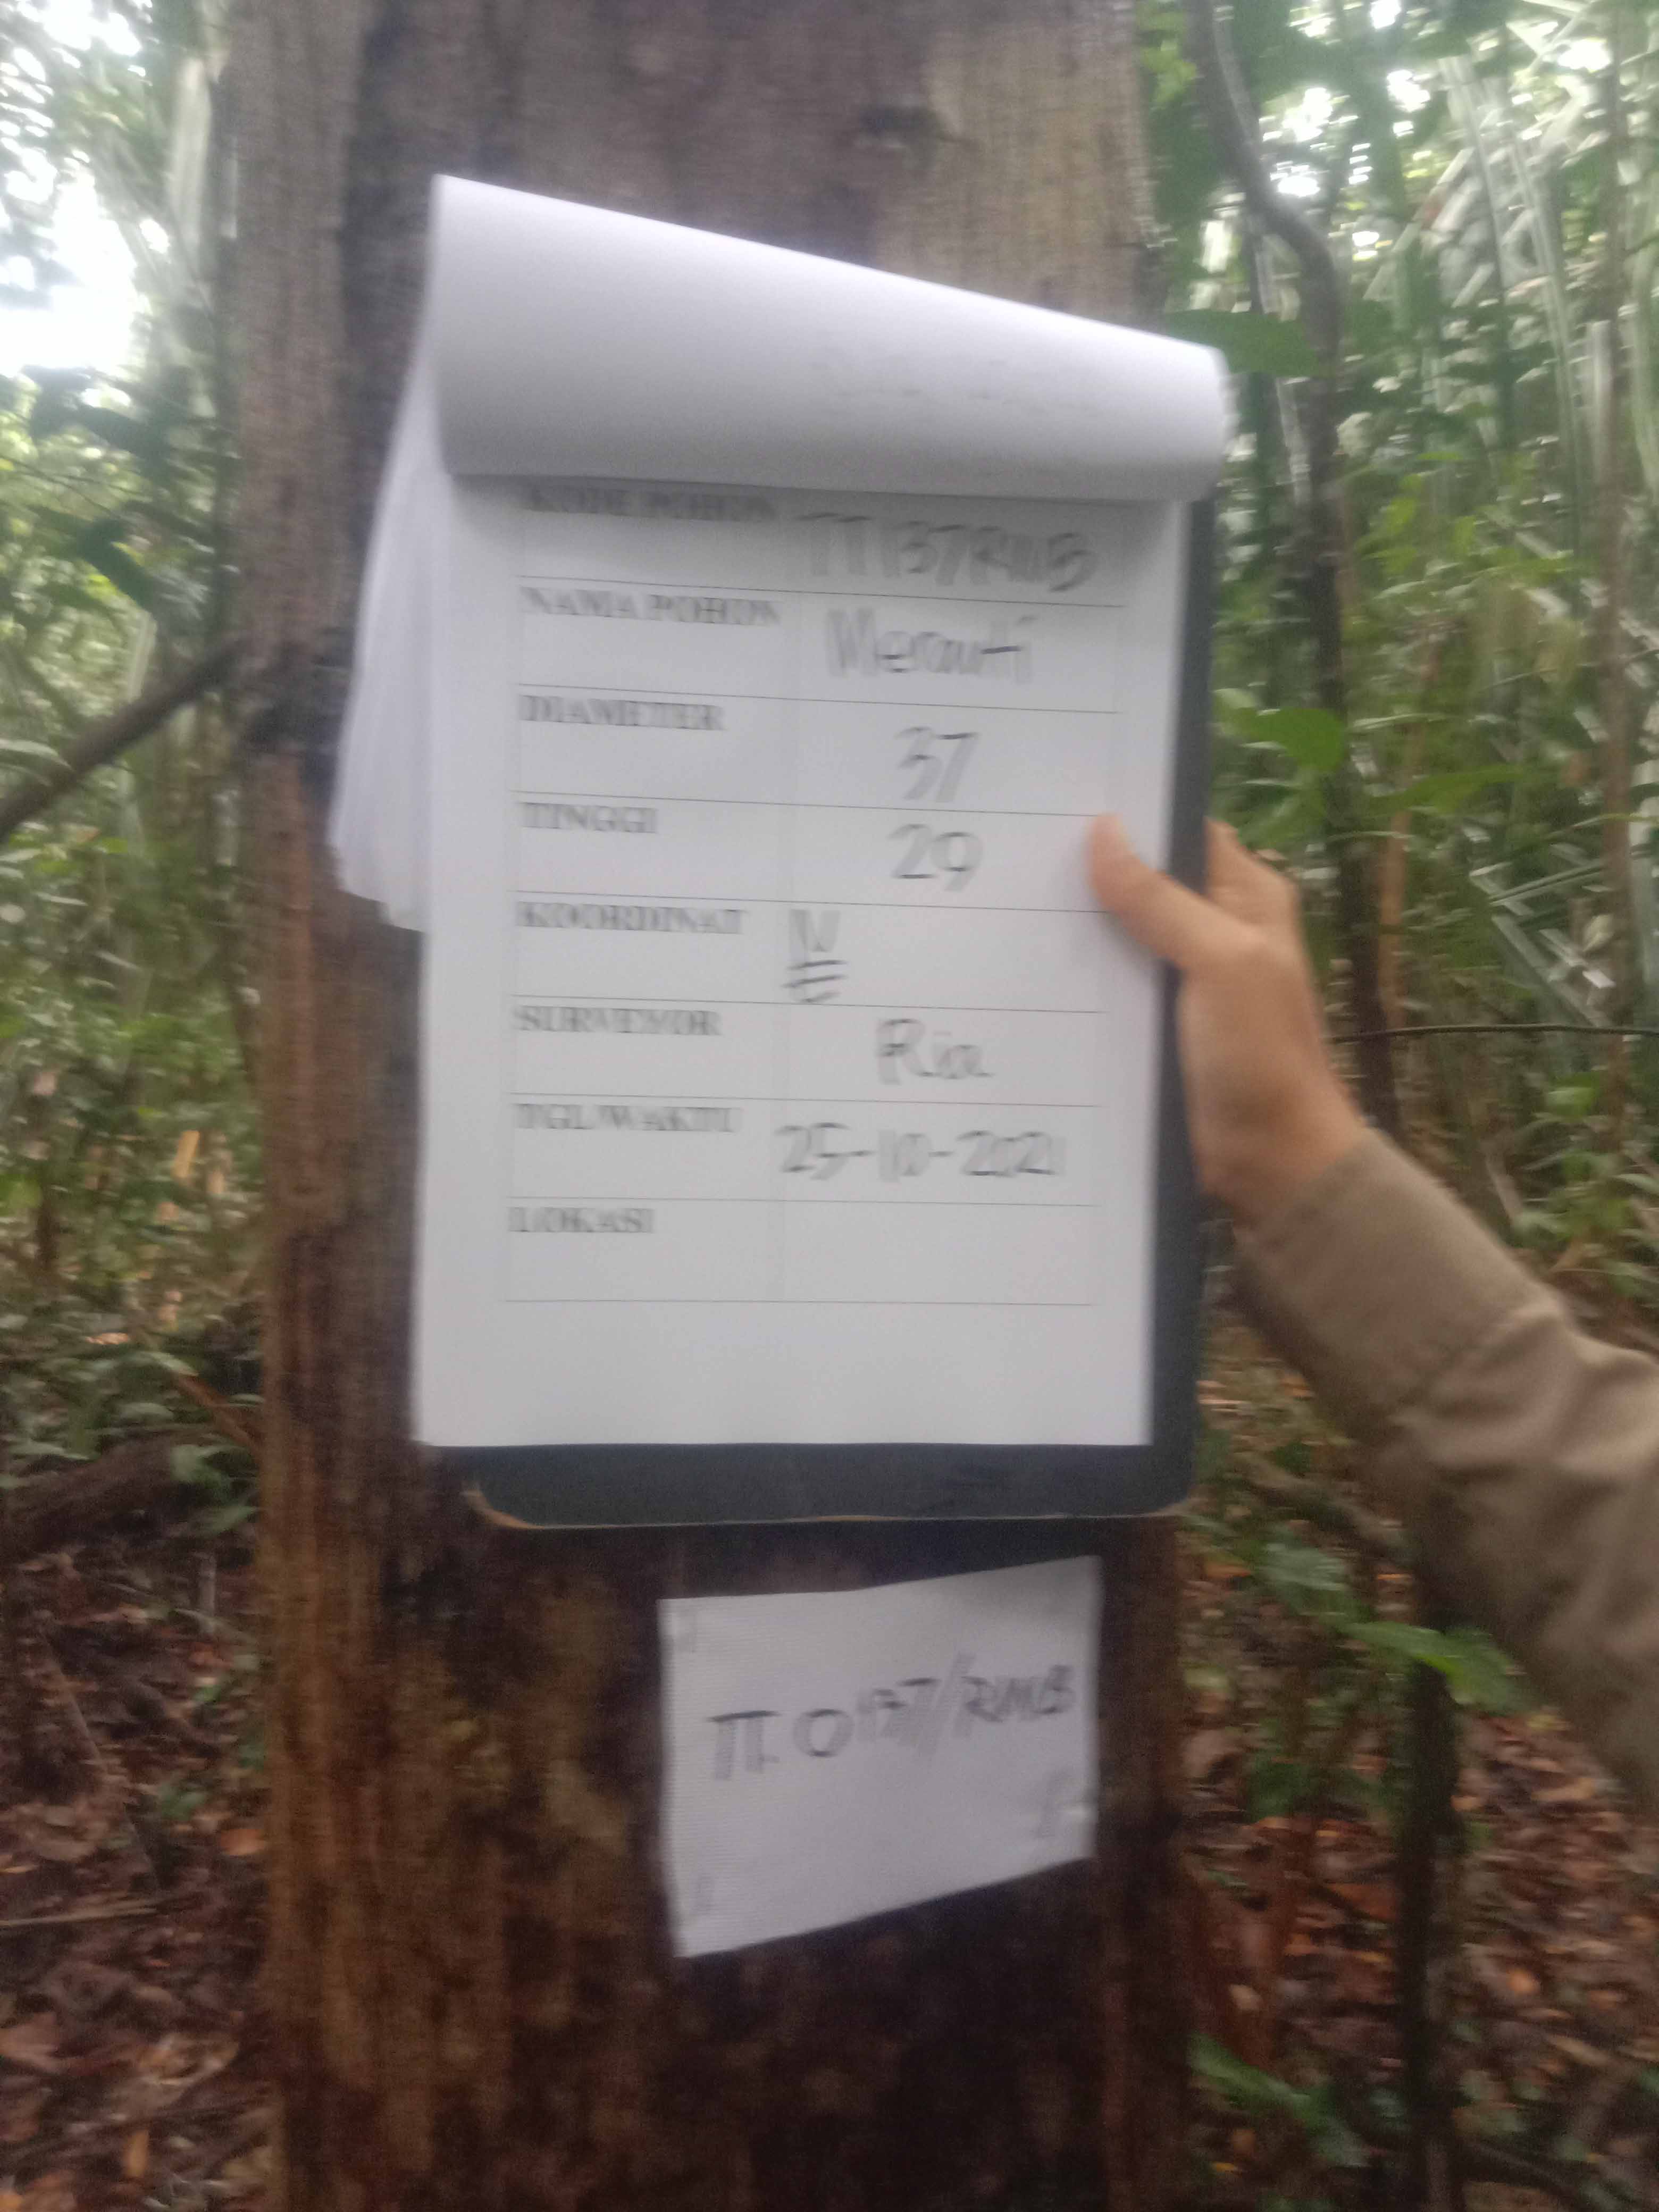 KODE POHON TT 137 RMB
NAMA POHON Meranti
DIAMETER 37
TINGGI 29
KOORDINAT N
E
SURVEYOR Ria
TGL/WAKTU 25-10-2021
LOKASI
TT. 0137/RMB